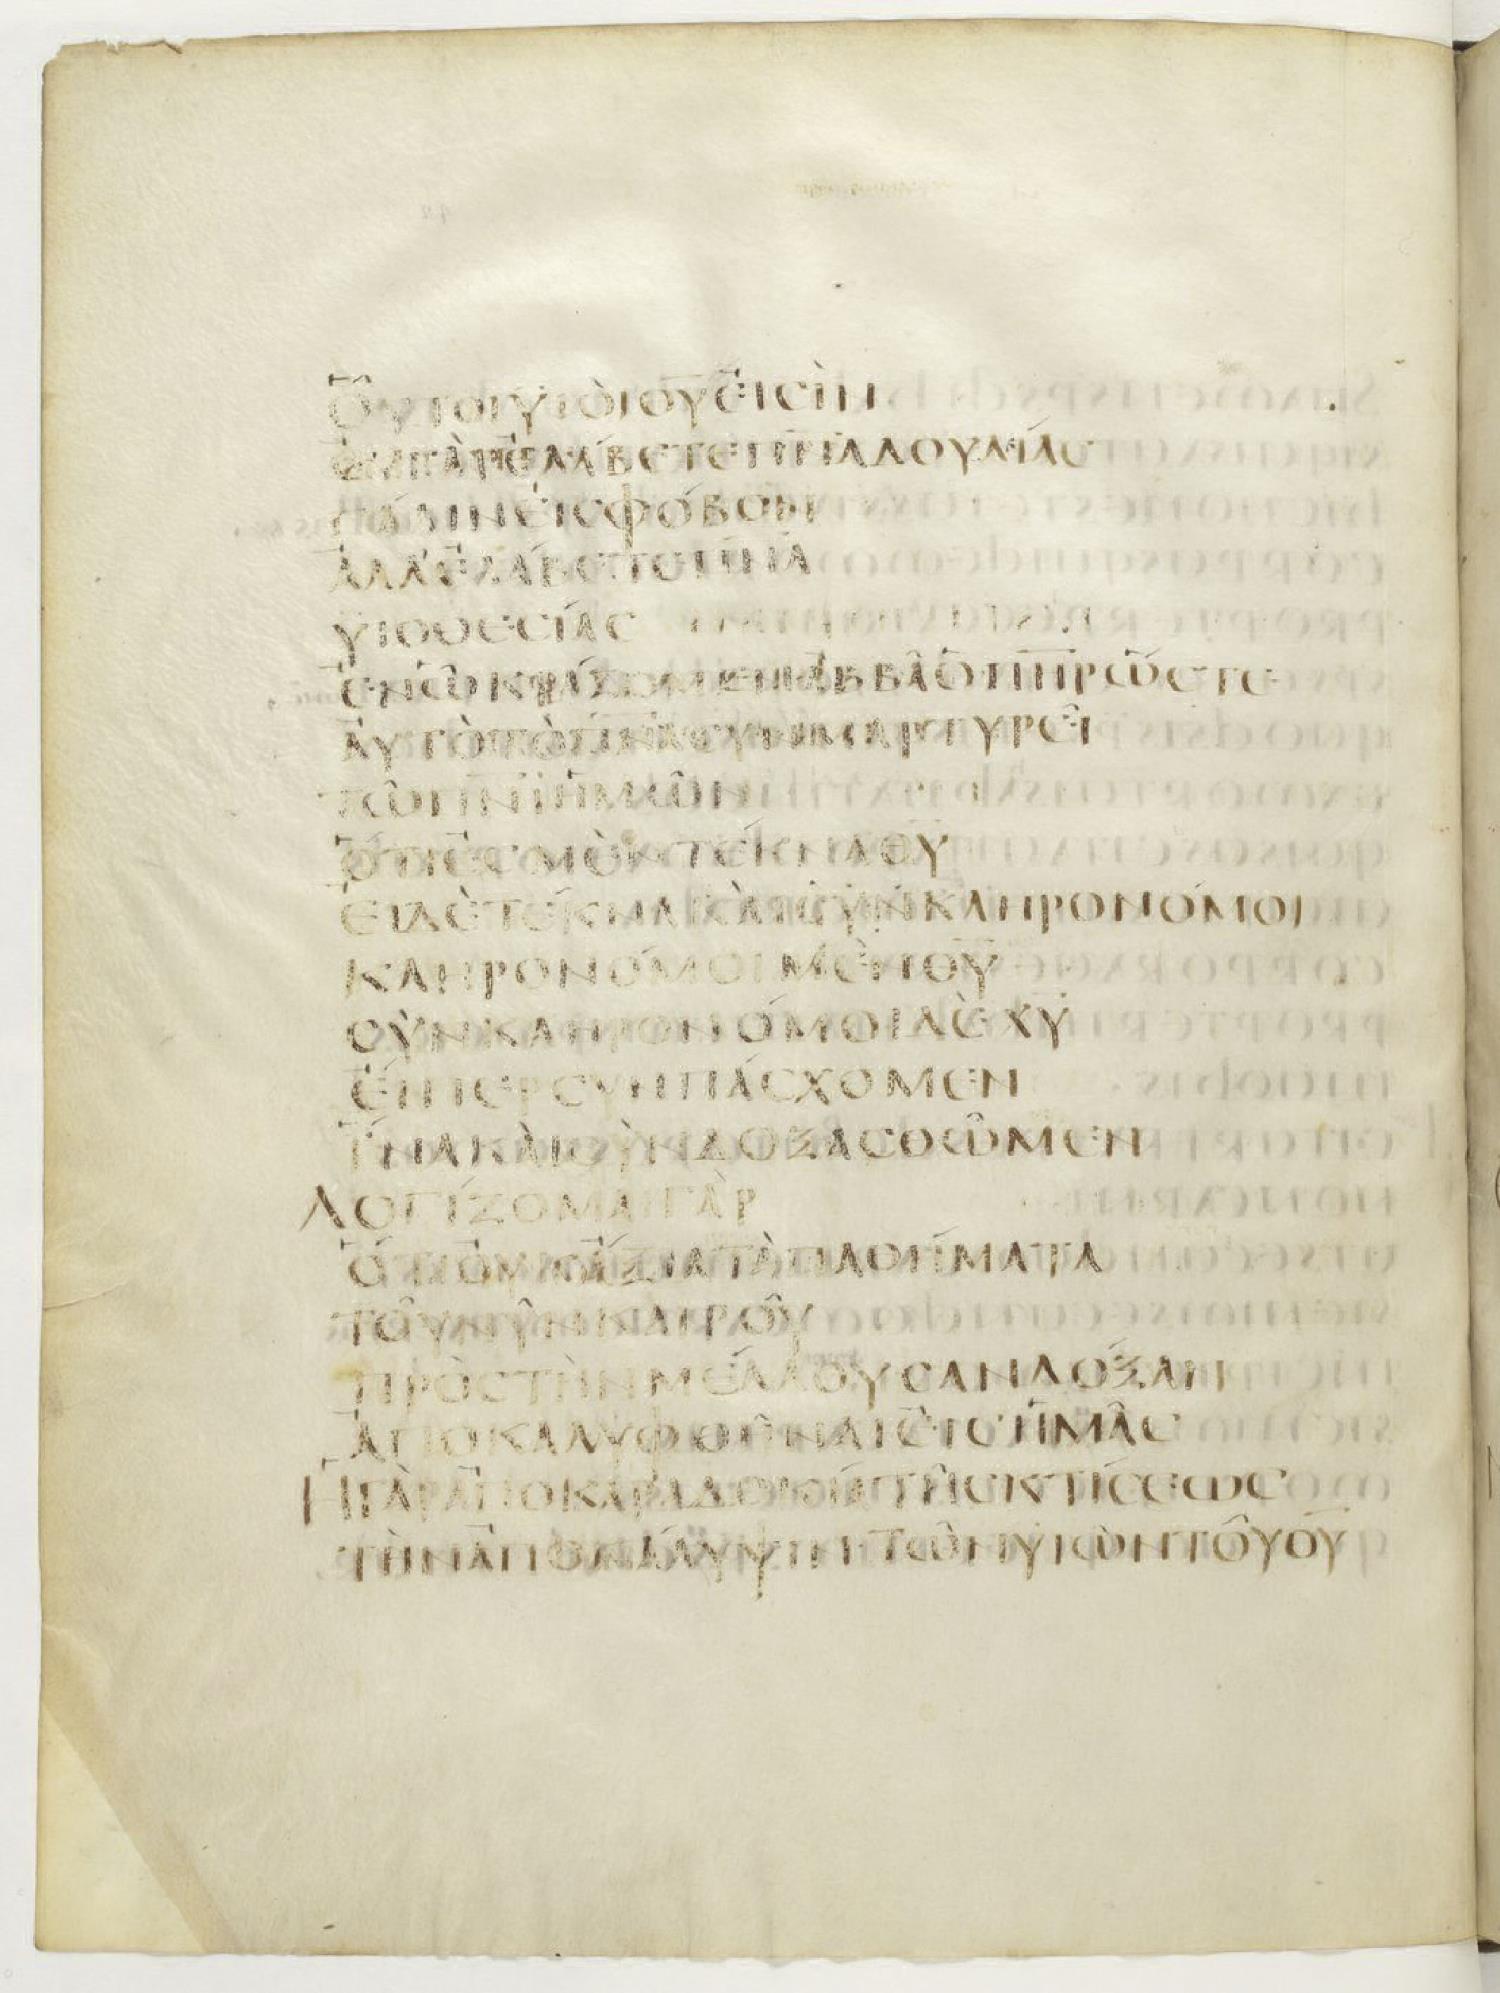 ΟΥΤΟΙ ΥΙΟΙ ΘΥ ΕΙCΙΝ
ΟΥ ΓΑΡ ΕΛΑΒΕΤΕ ΠΝΑ ΔΟΥΛΙΑC
ΠΑΛΙΝ ΕΙC ΦΟΒΟΝ
ΑΛΛ ΕΛΑΒΕΤΕ ΠΝΑ
ΥΙΟΘΕCΙΑC
ΕΝ Ω ΚΡΑΖΟΜΕΝ ΑΒΒΑ Ο ΠΗΡ ΩCΤΕ
ΑΥΤΟ ΤΟ ΠΝΑ CΥΝΜΑΡΤΥΡΕΙ
ΤΩ ΠΝΙ ΗΜΩΝ
ΟΤΙ ΕCΜΕΝ ΤΕΚΝΑ ΘΥ
ΕΙ ΔΕ ΤΕΚΝΑ ΚΑΙ CΥΝΚΛΗΡΟΝΟΜΟΙ
ΚΛΗΡΟΝΟΜΟΙ ΜΕΝ ΘΥ
CΥΝΚΛΗΡΟΝΟΜΟΙ ΔΕ ΧΥ
ΕΙΠΕΡ CΥΝΠΑCΧΟΜΕΝ
ΙΝΑ ΚΑΙ CΥΝΔΟΞΑCΘΩΜΕΝ
ΛΟΓΙΖΟΜΑΙ ΓΑΡ
ΟΤΙ ΟΥΚ ΑΞΙΑ ΤΑ ΠΑΘΗΜΑΤΑ
ΤΟΥ ΝΥΝ ΚΑΙΡΟΥ
ΠΡΟC ΤΗΝ ΜΕΛΛΟΥCΑΝ ΔΟΞΑΝ
ΑΠΟΚΑΛΥΦΘΗΝΑΙ ΕΙC ΗΜΑC
Η ΓΑΡ ΑΠΟΚΑΡΑΔΟΚΙΑ ΤΗC ΚΤΙCΕΩC
ΤΗΝ ΑΠΟΚΑΛΥΨΙΝ ΤΩΝ ΥΙΩΝ ΤΟΥ ΘΥ